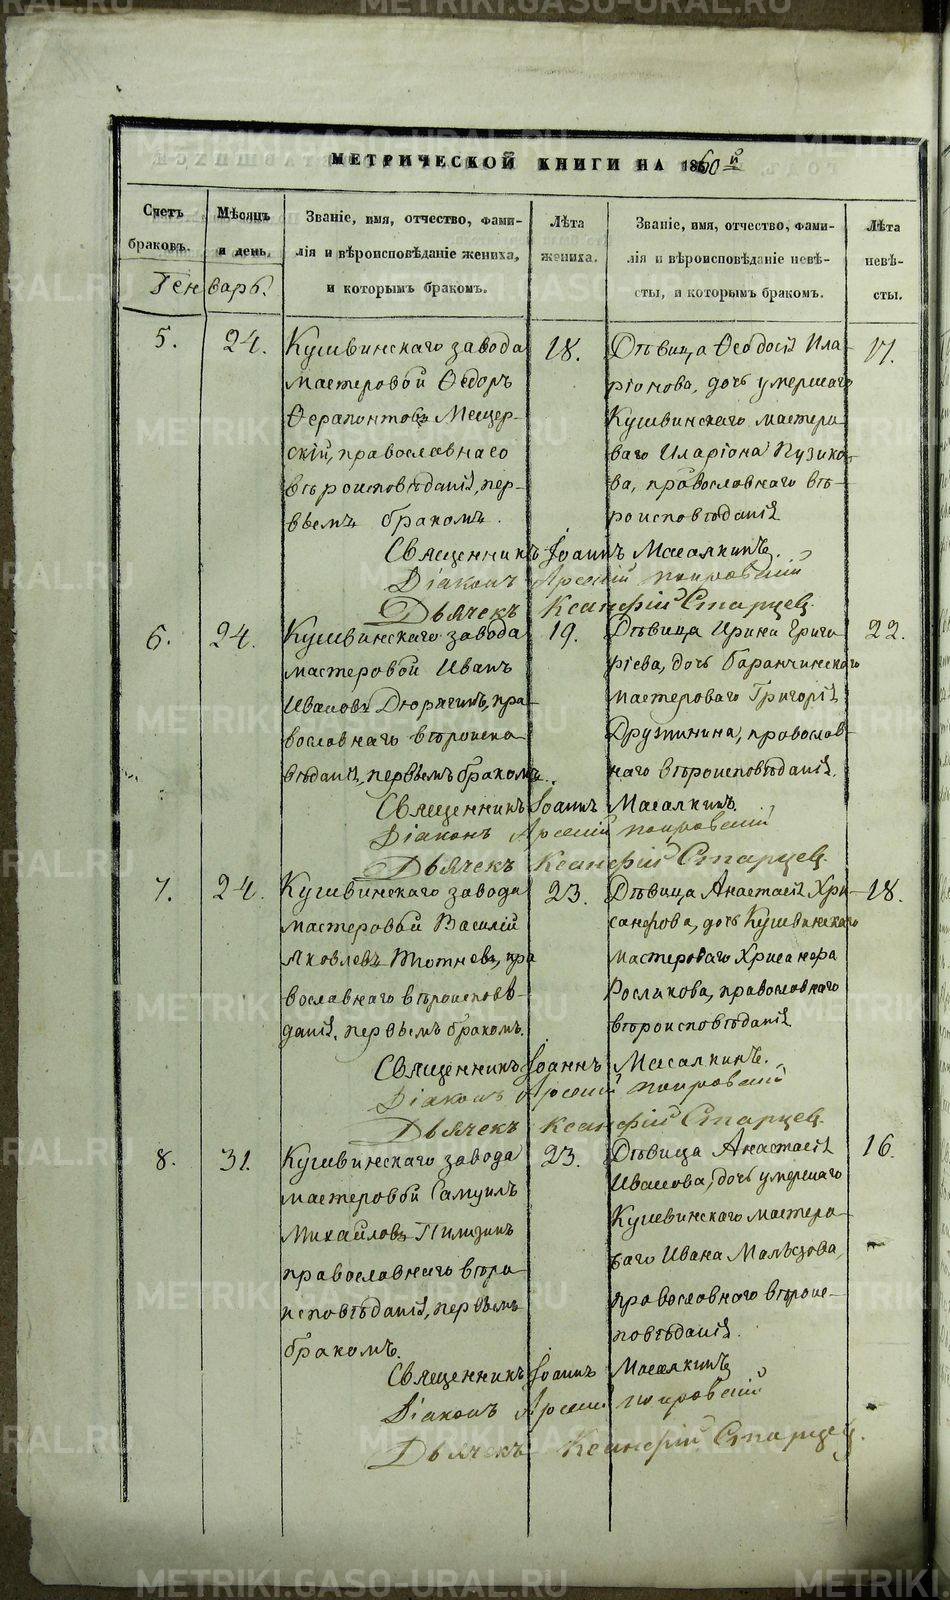 METRIKI.GASO-URAL.RU
МЕТРИЧЕСКОЙ КНИГИ НА 1860й
Счетъ браковъ.
Мѣсяцъ и день.
Званіе, имя, отчество, фами-
лія и вѣроисповѣданіе жениха,
и которымъ бракомъ.
Лѣта
жениха.
Званіе, имя, отчество, фами-
лія и вѣроисповѣданіе невѣ-
сты, и которымъ бракомъ.
Лѣта
невѣ-
сты.
Генварь.
5.
24.
Кушвинскаго завода
мастеровой Ѳедоръ
Ѳерапонтовъ Мещер-
скій, православнаго
вѣроисповѣданія, пер-
вымъ бракомъ.
18.
Дѣвица Ѳеодосія Ила-
ріонова, дочь умершаго
Кушвинскаго мастеро
ваго Иларіона Пузико-
ва, православнаго вѣ-
роисповѣданія
17.
Священникъ Іоаннъ Масалкинъ.
Діаконъ Арсеній Покровскій
Дьячекъ Ксанфій Старцев.
6.
24.
Кушвинскаго завода
мастеровой Иванъ
Ивановъ Дюрягинъ, пра-
вославнаго вѣроиспо
вѣданія, первымъ бракомъ.
19.
Дѣвица Ирина Григо
ріева, дочь Баранчинскаго
мастероваго Григорія
Дружинина, православ-
наго вѣроисповѣданія.
22.
Священникъ Іоаннъ Масалкинъ.
Діаконъ Арсеній Покровскій
Дьячекъ Ксанфій Старцев.
7.
24.
Кушвинскаго завода
мастеровый Василій
Яковлевъ пра
вославнаго вѣроисповѣ-
данія, первымъ бракомъ.
23.
Дѣвица Анастасія Хри-
санфова, дочь Кушвинскаго
мастероваго Хрисанфа
Рослякова, православнаго
вѣроисповѣданія
18.
Священникъ Іоаннъ Масалкинъ.
Діаконъ Арсеній Покровскій
Дьячекъ Ксанфій Старцев.
8.
31.
Кушвинскаго завода
мастеровой Самуилъ
Михайловъ
православнаго вѣро
исповѣданія, первымъ
бракомъ.
23.
Дѣвица Анастасія
Иванова, дочь умершаго
Кушвинскаго мастеро
ваго Ивана Мальзова,
православнаго вѣроис-
повѣданія.
16.
Священникъ Іоаннъ Масалкинъ
Діаконъ Арсеній Покровскій
Дьячекъ Ксанфій Старцев.
METRIKI.GASO-URAL.RU